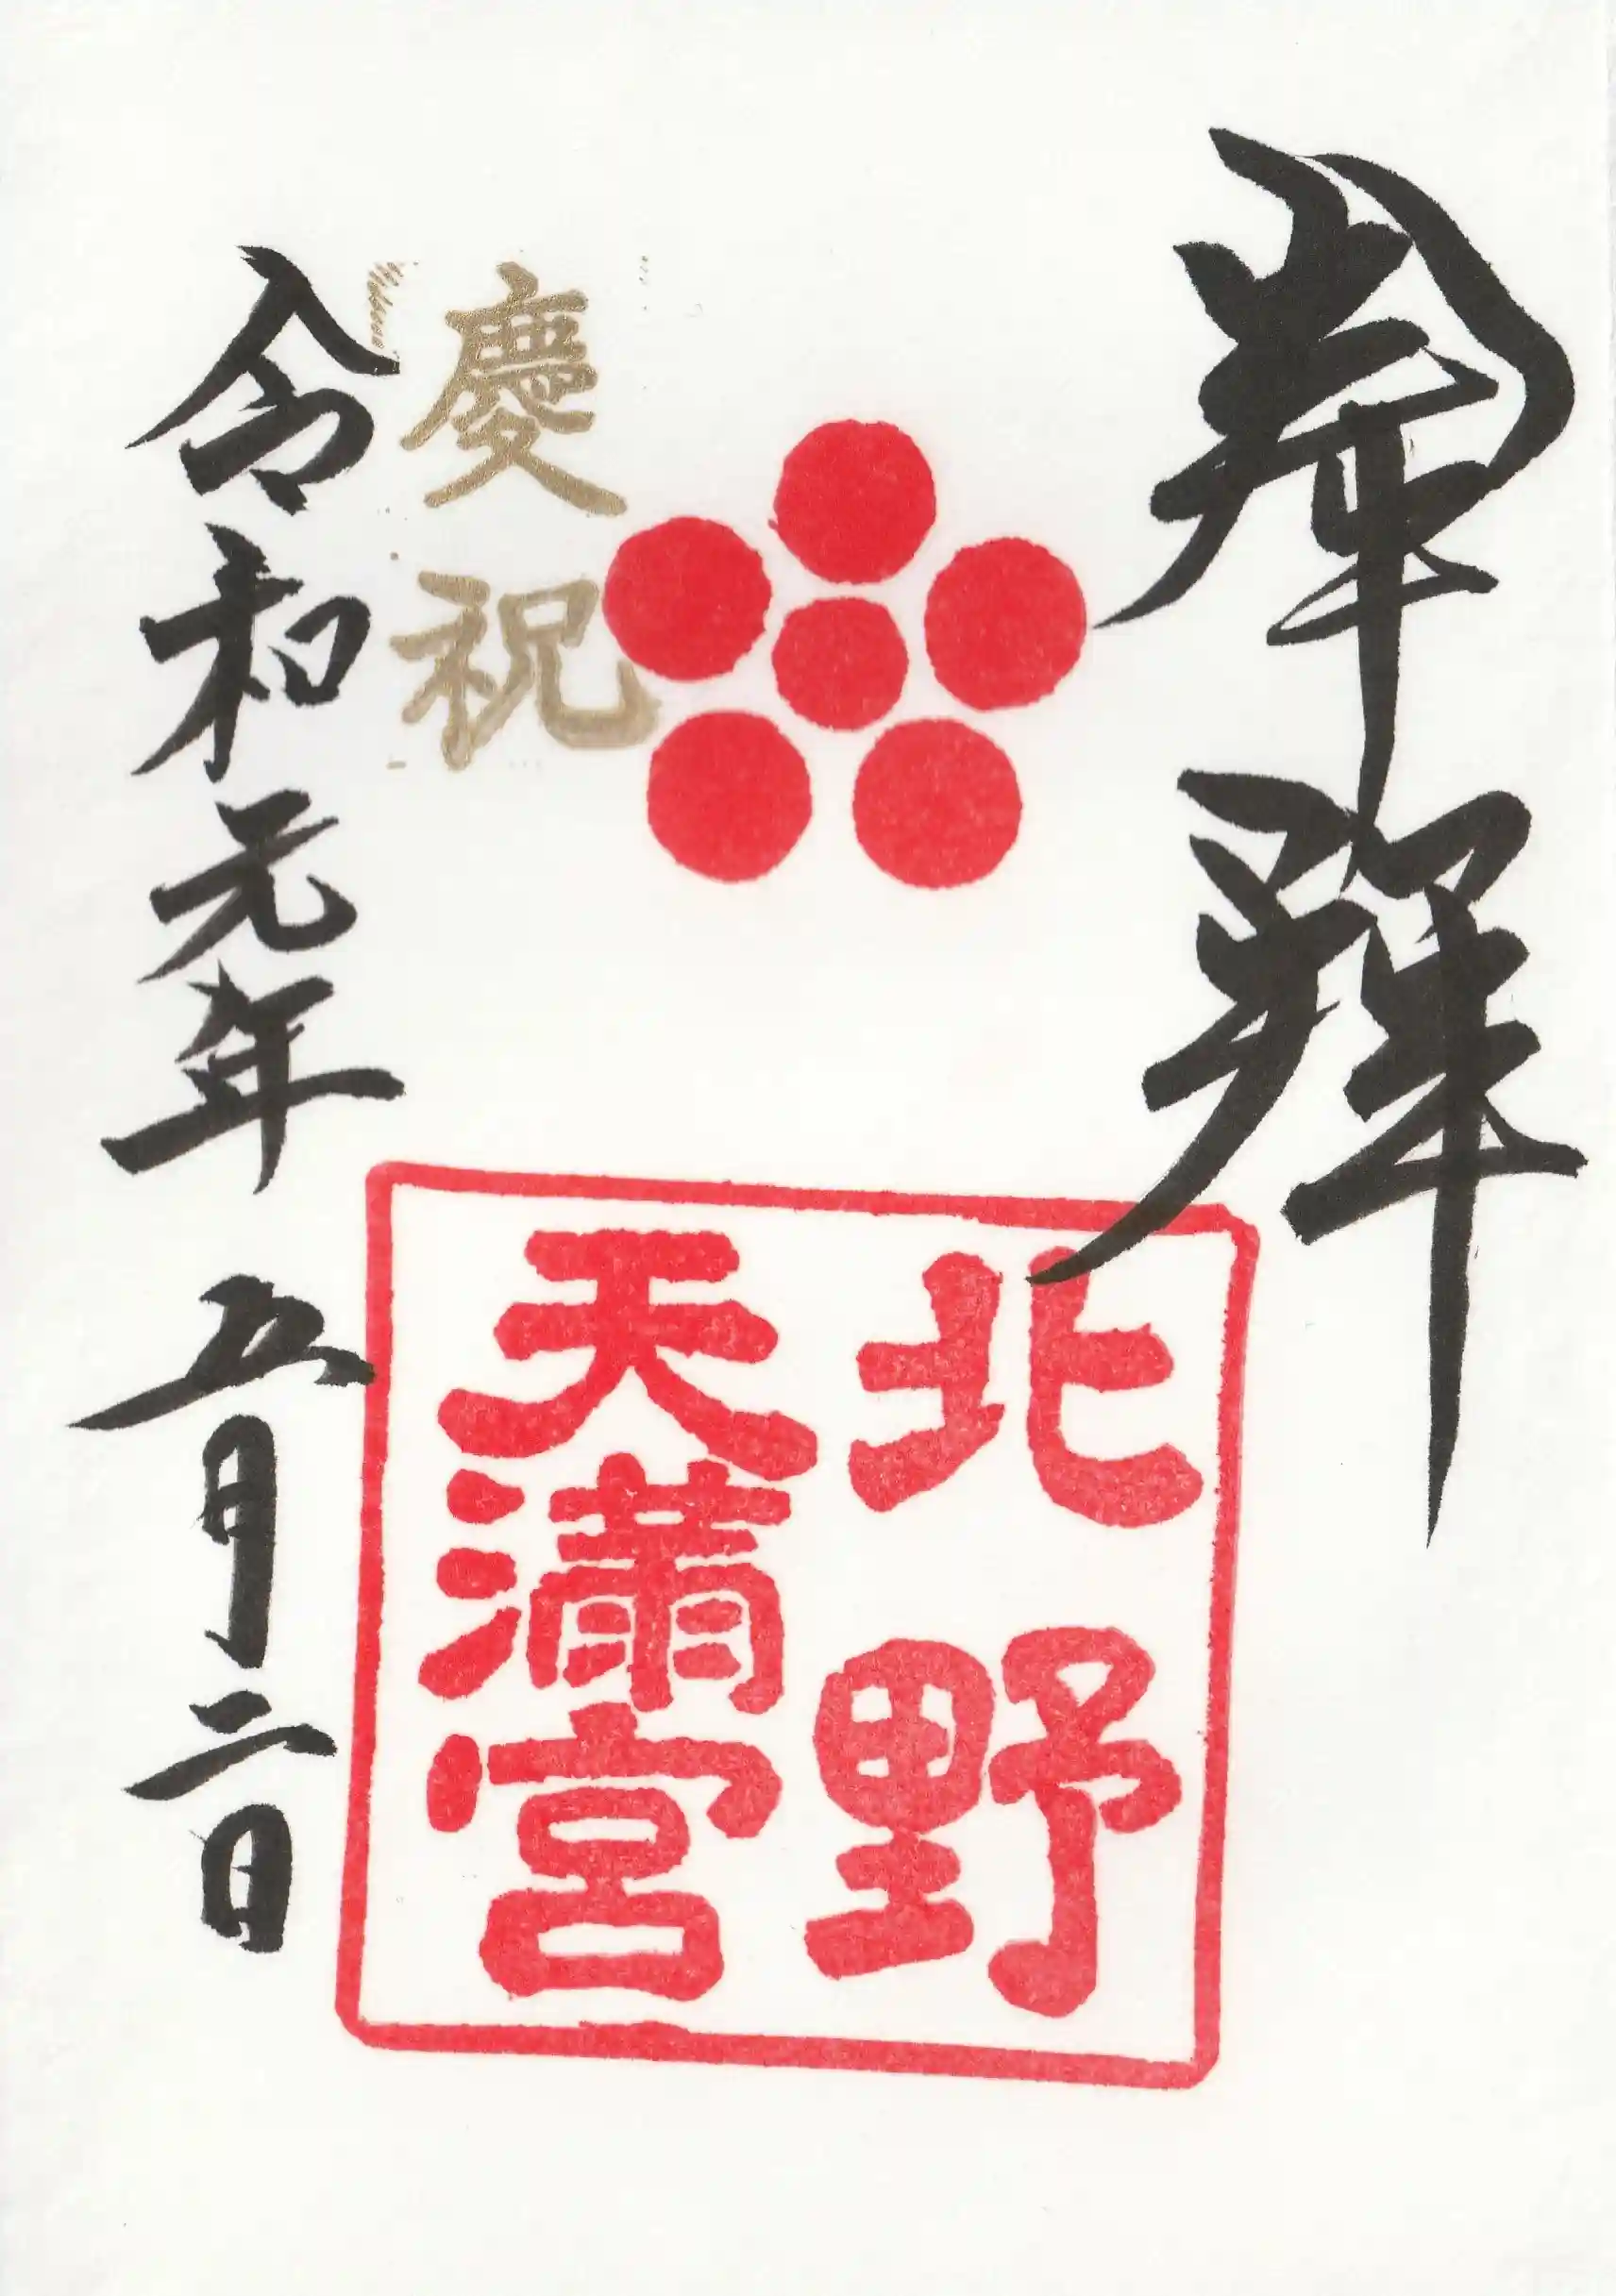 奉拝
北野
天満宮
慶祝
令和元年 五月二日